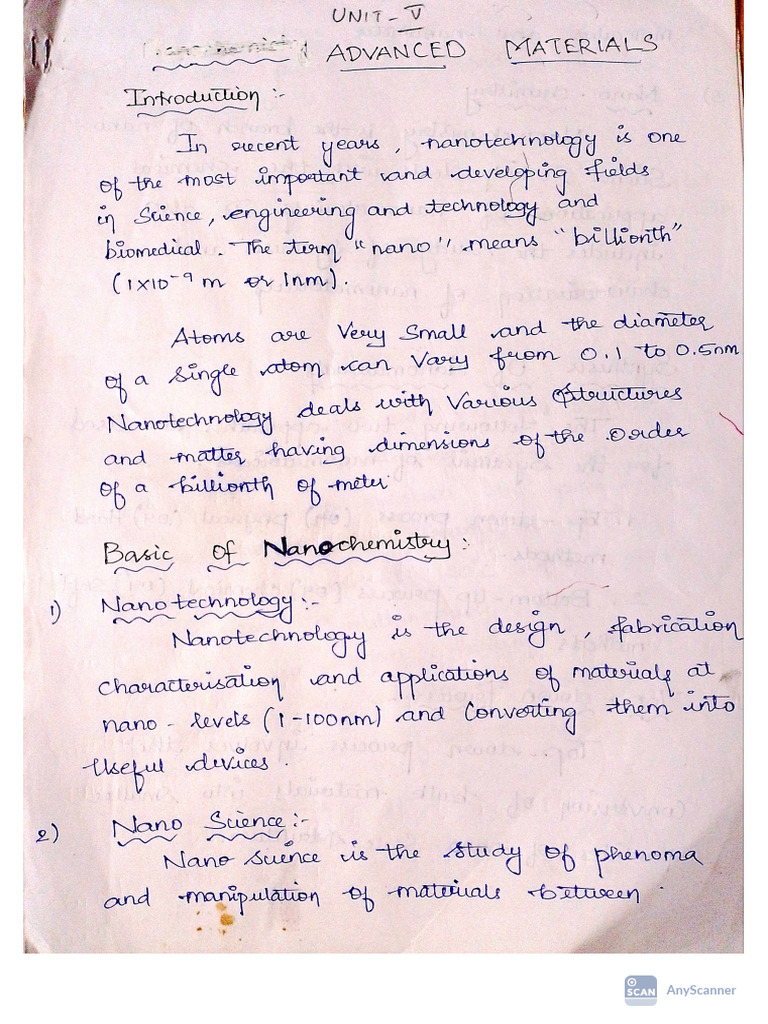 UNIT - V
ADVANCED MATERIALS
Introduction :-
In recent years, nanotechnology is one
of the most important and developing fields
in Science, engineering and technology and
biomedical. The term "nano" means "billionth"
(1×10⁻⁹ m or 1nm).
Atoms are Very Small and the diameter
of a single atom can Vary from 0.1 to 0.5nm
Nanotechnology deals with Various Structures
and matter having dimensions of the Order
of a billionth of meter
Basic of Nanochemistry :-
1) Nanotechnology :-
Nanotechnology is the design, fabrication
Characterisation and applications of materials at
nano - levels (1-100nm) and Converting them into
Useful devices.
2) Nano Science :-
Nano science is the study of phenoma
and manipulation of materials between.
SCAN AnyScanner